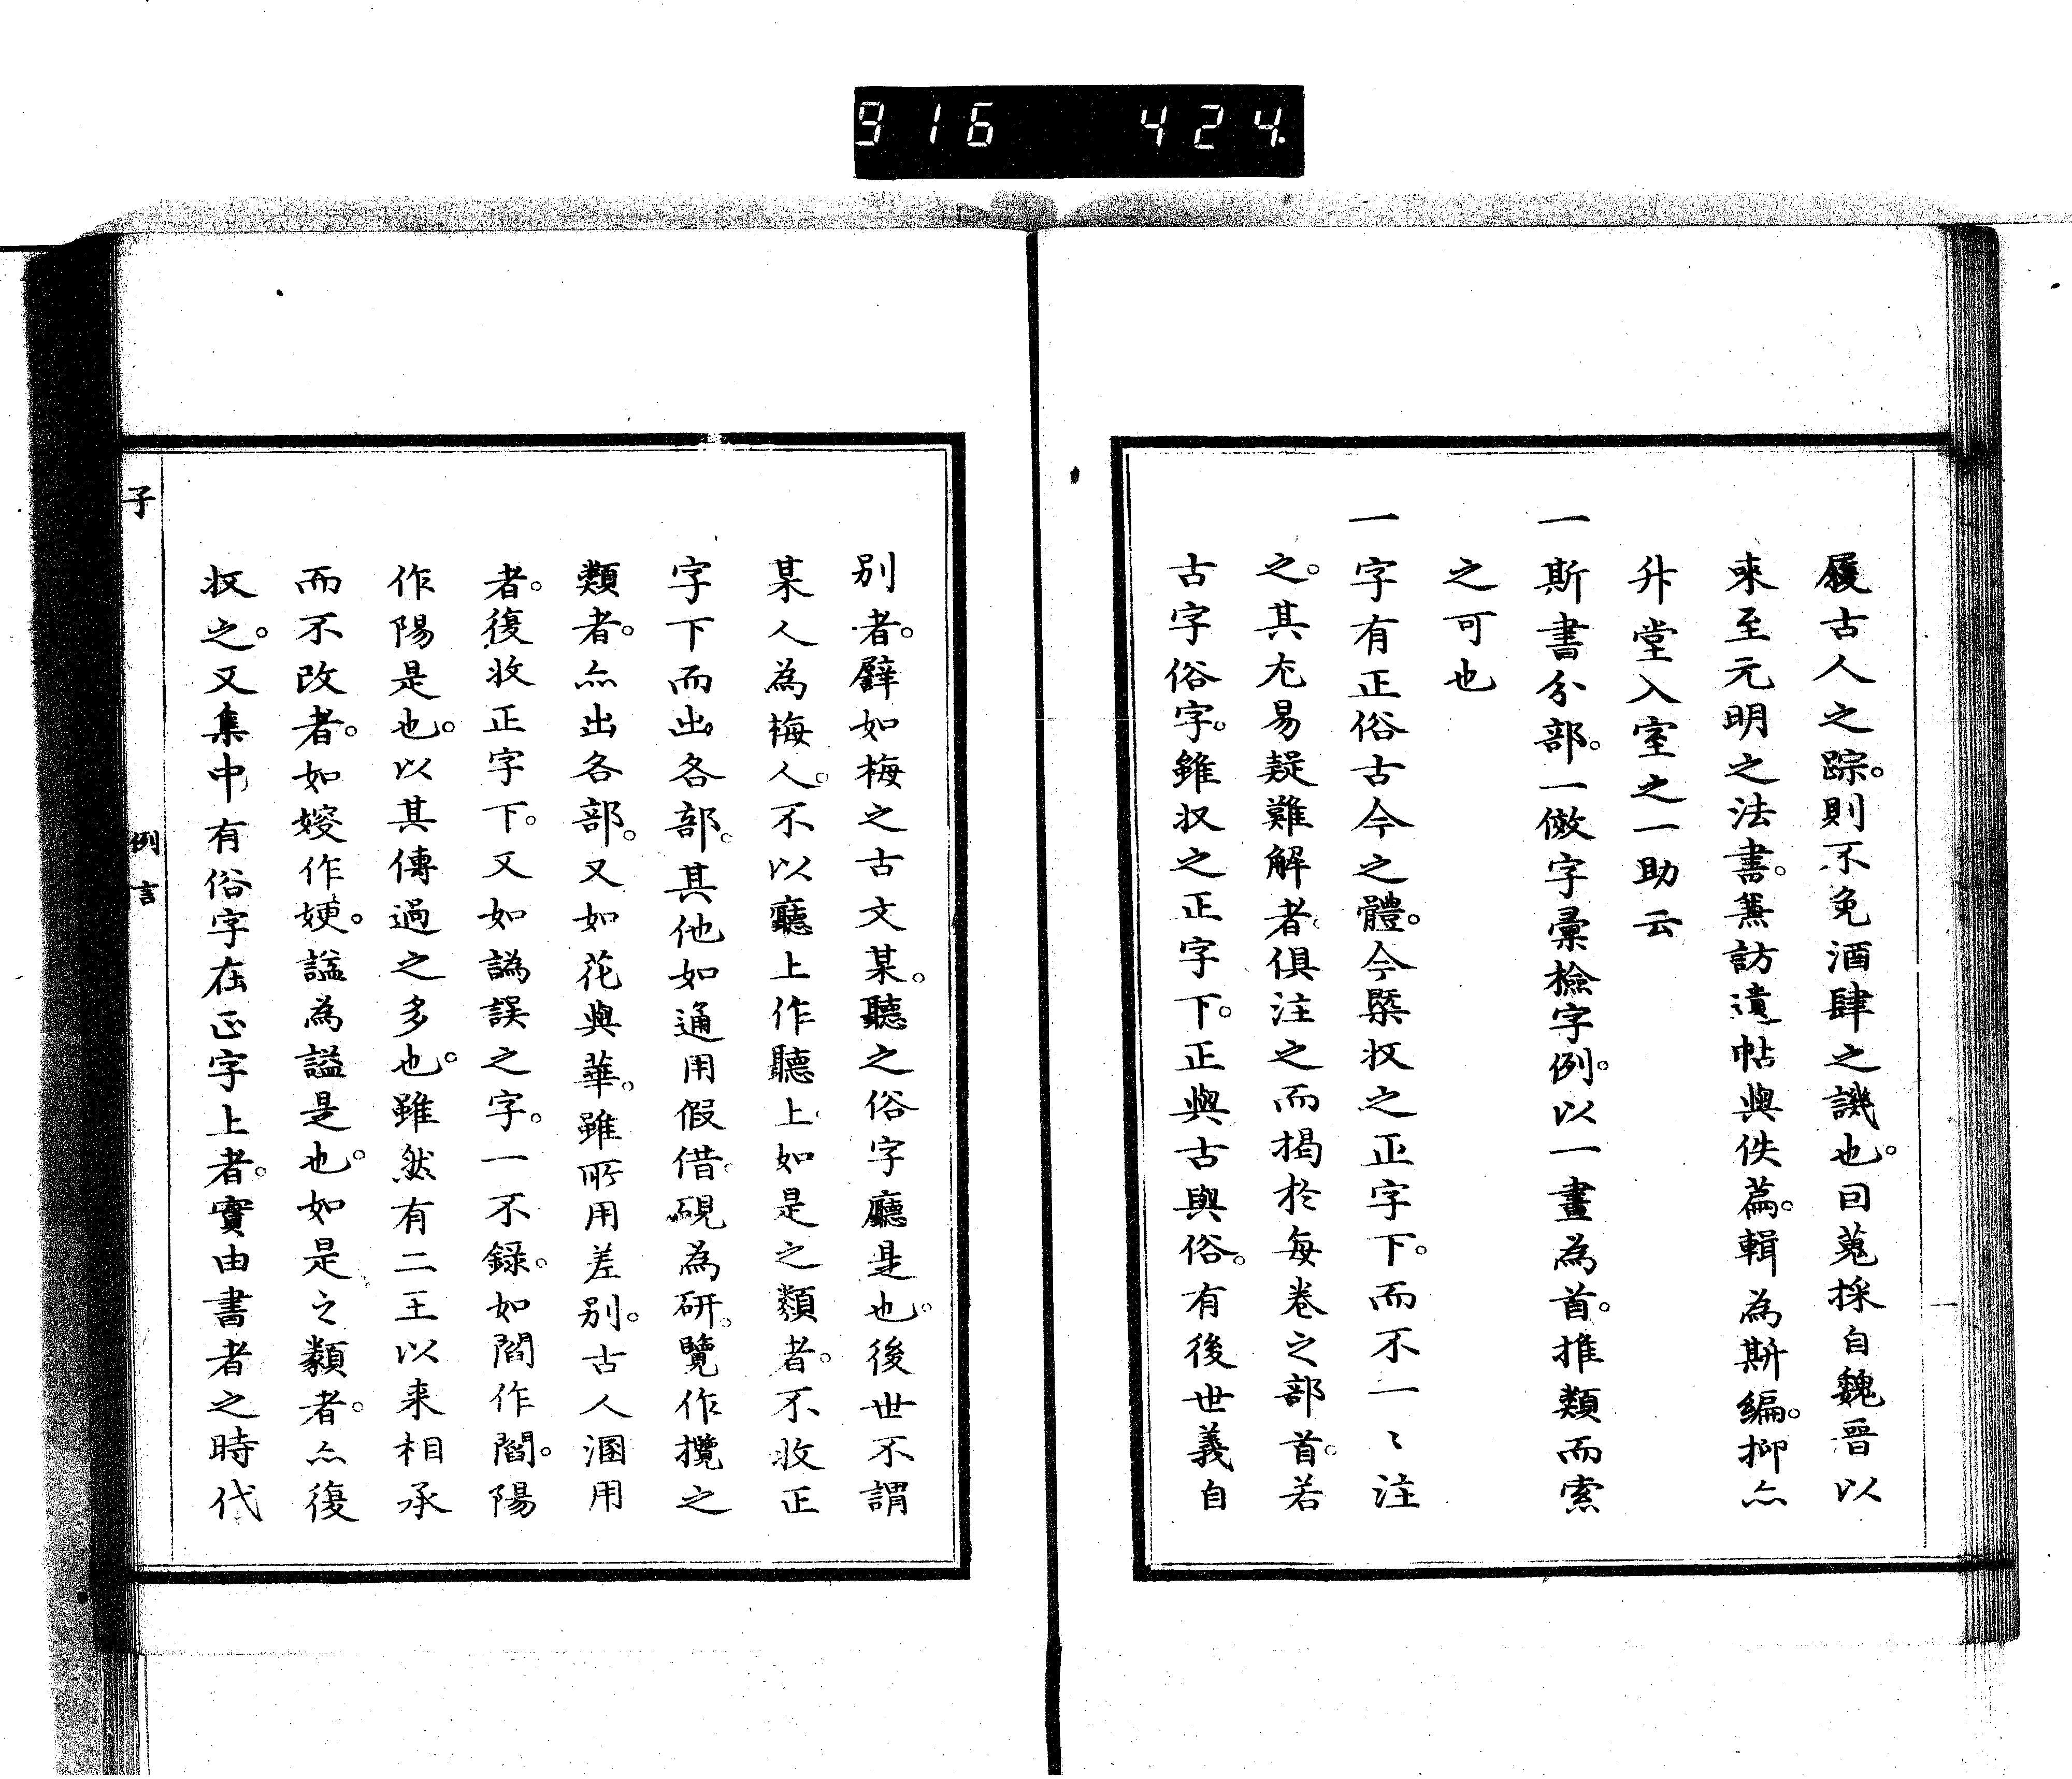 916 424
履古人之踪。則不免酒肆之譏也。因蒐採自魏晉以
來至元明之法書。兼訪遺帖與佚篇。輯為斯編。抑亦
升堂入室之一助云
一斯書分部。一倣字彙檢字例。以一畫為首。推類而索
之可也
一字有正俗古今之體。今槩收之正字下。而不一〻注
之。其尤易疑難解者。俱注之而揭於每卷之部首。若
古字俗字。雖收之正字下。正與古與俗。有後世義自
別者。譬如梅之古文某。聽之俗字廳是也。後世不謂
某人為梅人。不以廳上作聽上。如是之類者。不收正
字下而出各部。其他如通用假借。硯為研。覽作攬之
類者。亦出各部。又如花與華。雖所用差別。古人溷用
者。復收正字下。又如譌誤之字。一不録。如閻作閻。陽
作陽是也。以其傳過之多也。雖然有二王以来相承
而不改者。如嫂作㛐。諡為謚是也。如是之類者。亦復
收之。又集中有俗字在正字上者。實由書者之時代
子
例言